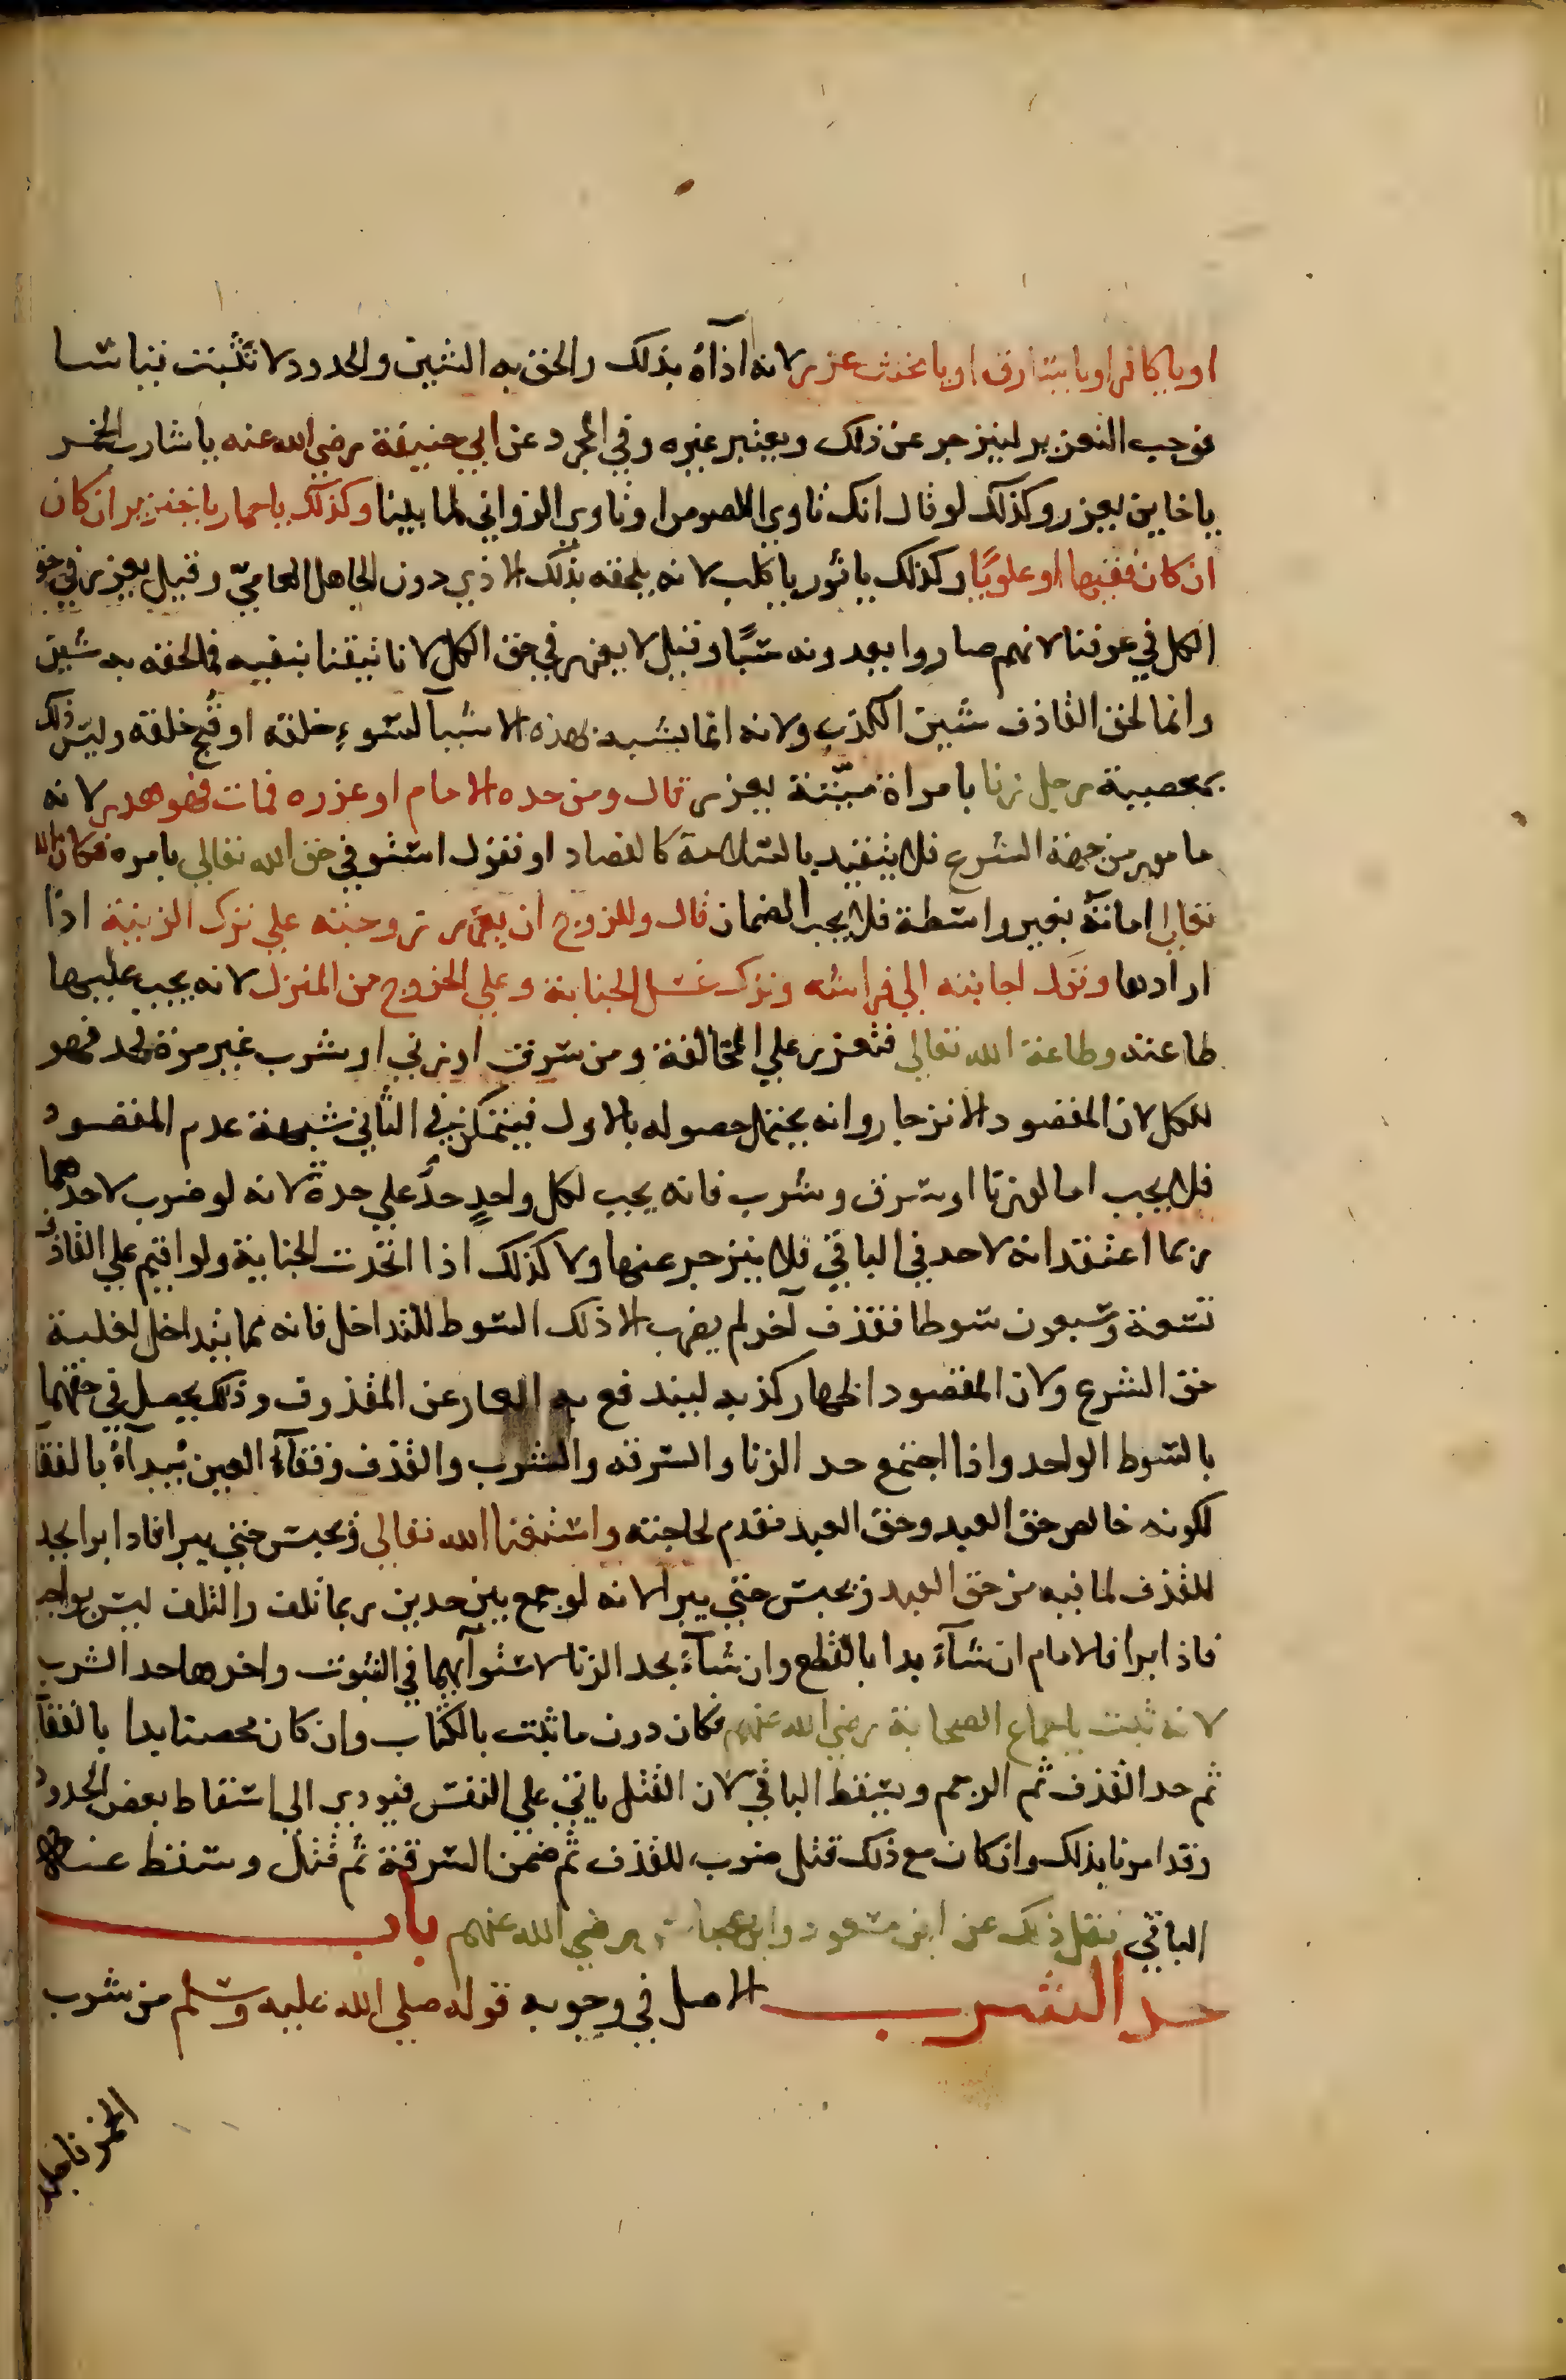 او يا كافر او يا سارق او يا مخنث عزر لانه اذآه بذلك والحق به الشين والحدود لا تثبت قياسا
فوجب التعزير لينزجر عن ذلك ويعتبر غيره وفي المجرد عن ابي حنيفة رضي الله عنه يا شارب الخمر
يا خاين يعزر وكذلك لو قال انك تاوي اللصوص او تاوي الزواني لما بينا وكذلك يا حمار يا خنزير ان كان
ان كان فقيها او علويًا وكذلك يا ثور يا كلب لانه يلحقه بذلك الاذي دون الجاهل العاميّ وقيل يعزر في حق
الكل في عرفنا لانهم صاروا يعدونه سبًا وقيل لا يعزر في حق الكل لانا تيقنا بنفيه فما لحقه به شين
وانما لحق القاذف شين الكذب ولانه انما يشبهه بهذه الاشيآ لسوءِ خلقه او قُبح خلقته وليس ذلك
بمعصيية رجل زنا بامراة ميّتة يعزر قال ومن حده الامام او عزره فمات فهو هدر لانه
مامور من جهة الشرع فلا يتقيد بالسلامة كالفصاد او نقول استوفي حق الله تعالي بامره فكان الله
تعالي اماته بغير واسطة فلا يجب الضمان قال وللزوج ان يعزر زوجته علي ترك الزينة اذا
ارادها وترك اجابته الي فراشه وترك غسل الجنابة وعلي الخروج من المنزل لانه يجب عليها
طاعته وطاعة الله تعالي فتعزر علي المخالفة ومن سرق او زني او شرب غير مرة فحد فهو
للكل لان المقصود الانزجار وانه يحتمل حصوله بالاول فيتمكن في الثاني شبهة عدم المقصود
فلا يجب اما لو زنا او سرق وشرب فانه يجب لكل واحدٍ حدٌ علي حدة لانه لو ضرب لاحدهما
ربما اعتقد انه لا حد في الباقي فلا ينزجر عنها ولا كذلك اذا اتحدت الجناية ولو اقيم علي القاذف
تسعة وسبعون سوطا فقذف آخر لم يضرب الا ذلك السوط للتداخل فانه مما يتداخل لغلبة
حق الشرع ولان المقصود اظهار كذبه ليندفع به العار عن المقذوف وذلك يحصل في حقهما
بالسوط الواحد واذا اجتمع حد الزنا والسرقه والشرب والقذف وفقآء العين يُبدآءُ بالفقا
لكونه خالص حق العبد وحق العبد مقدم لحاجته واستغنا الله تعالي ويحبس حتي يبرا فاذا برا يحد
للقذف لما فيه من حق العبد ويحبس حتي يبرا لانه لو جمع بين حدين ربما تلف والتلف ليس بواجب
فاذا برا فالامام ان شآء بدا بالقطع وان شآء بحد الزنا لاستوآيهما في الثبوت واخرها حد الشرب
لانه ثبت باجماع الصحابة رضي الله عنهم فكان دون ما ثبت بالكتاب وان كان محصنا يدا بالفقآ
ثم حد القذف ثم الرجم ويسقط الباقي لان القتل ياتي علي النفس فيودي الي اسقاط بعض الحدود
وقد امرنا بذلك وان كان مع ذلك قتل ضرب للقذف ثم ضمن السرقة ثم قتل وسقط عنه
الباقي نقل ذلك عن ابن مسعود وابن عباس رضي الله عنهم باب
حد الشرب الاصل في وجوبه قوله صلي الله عليه وسلم من شرب
الخمر فاجلد